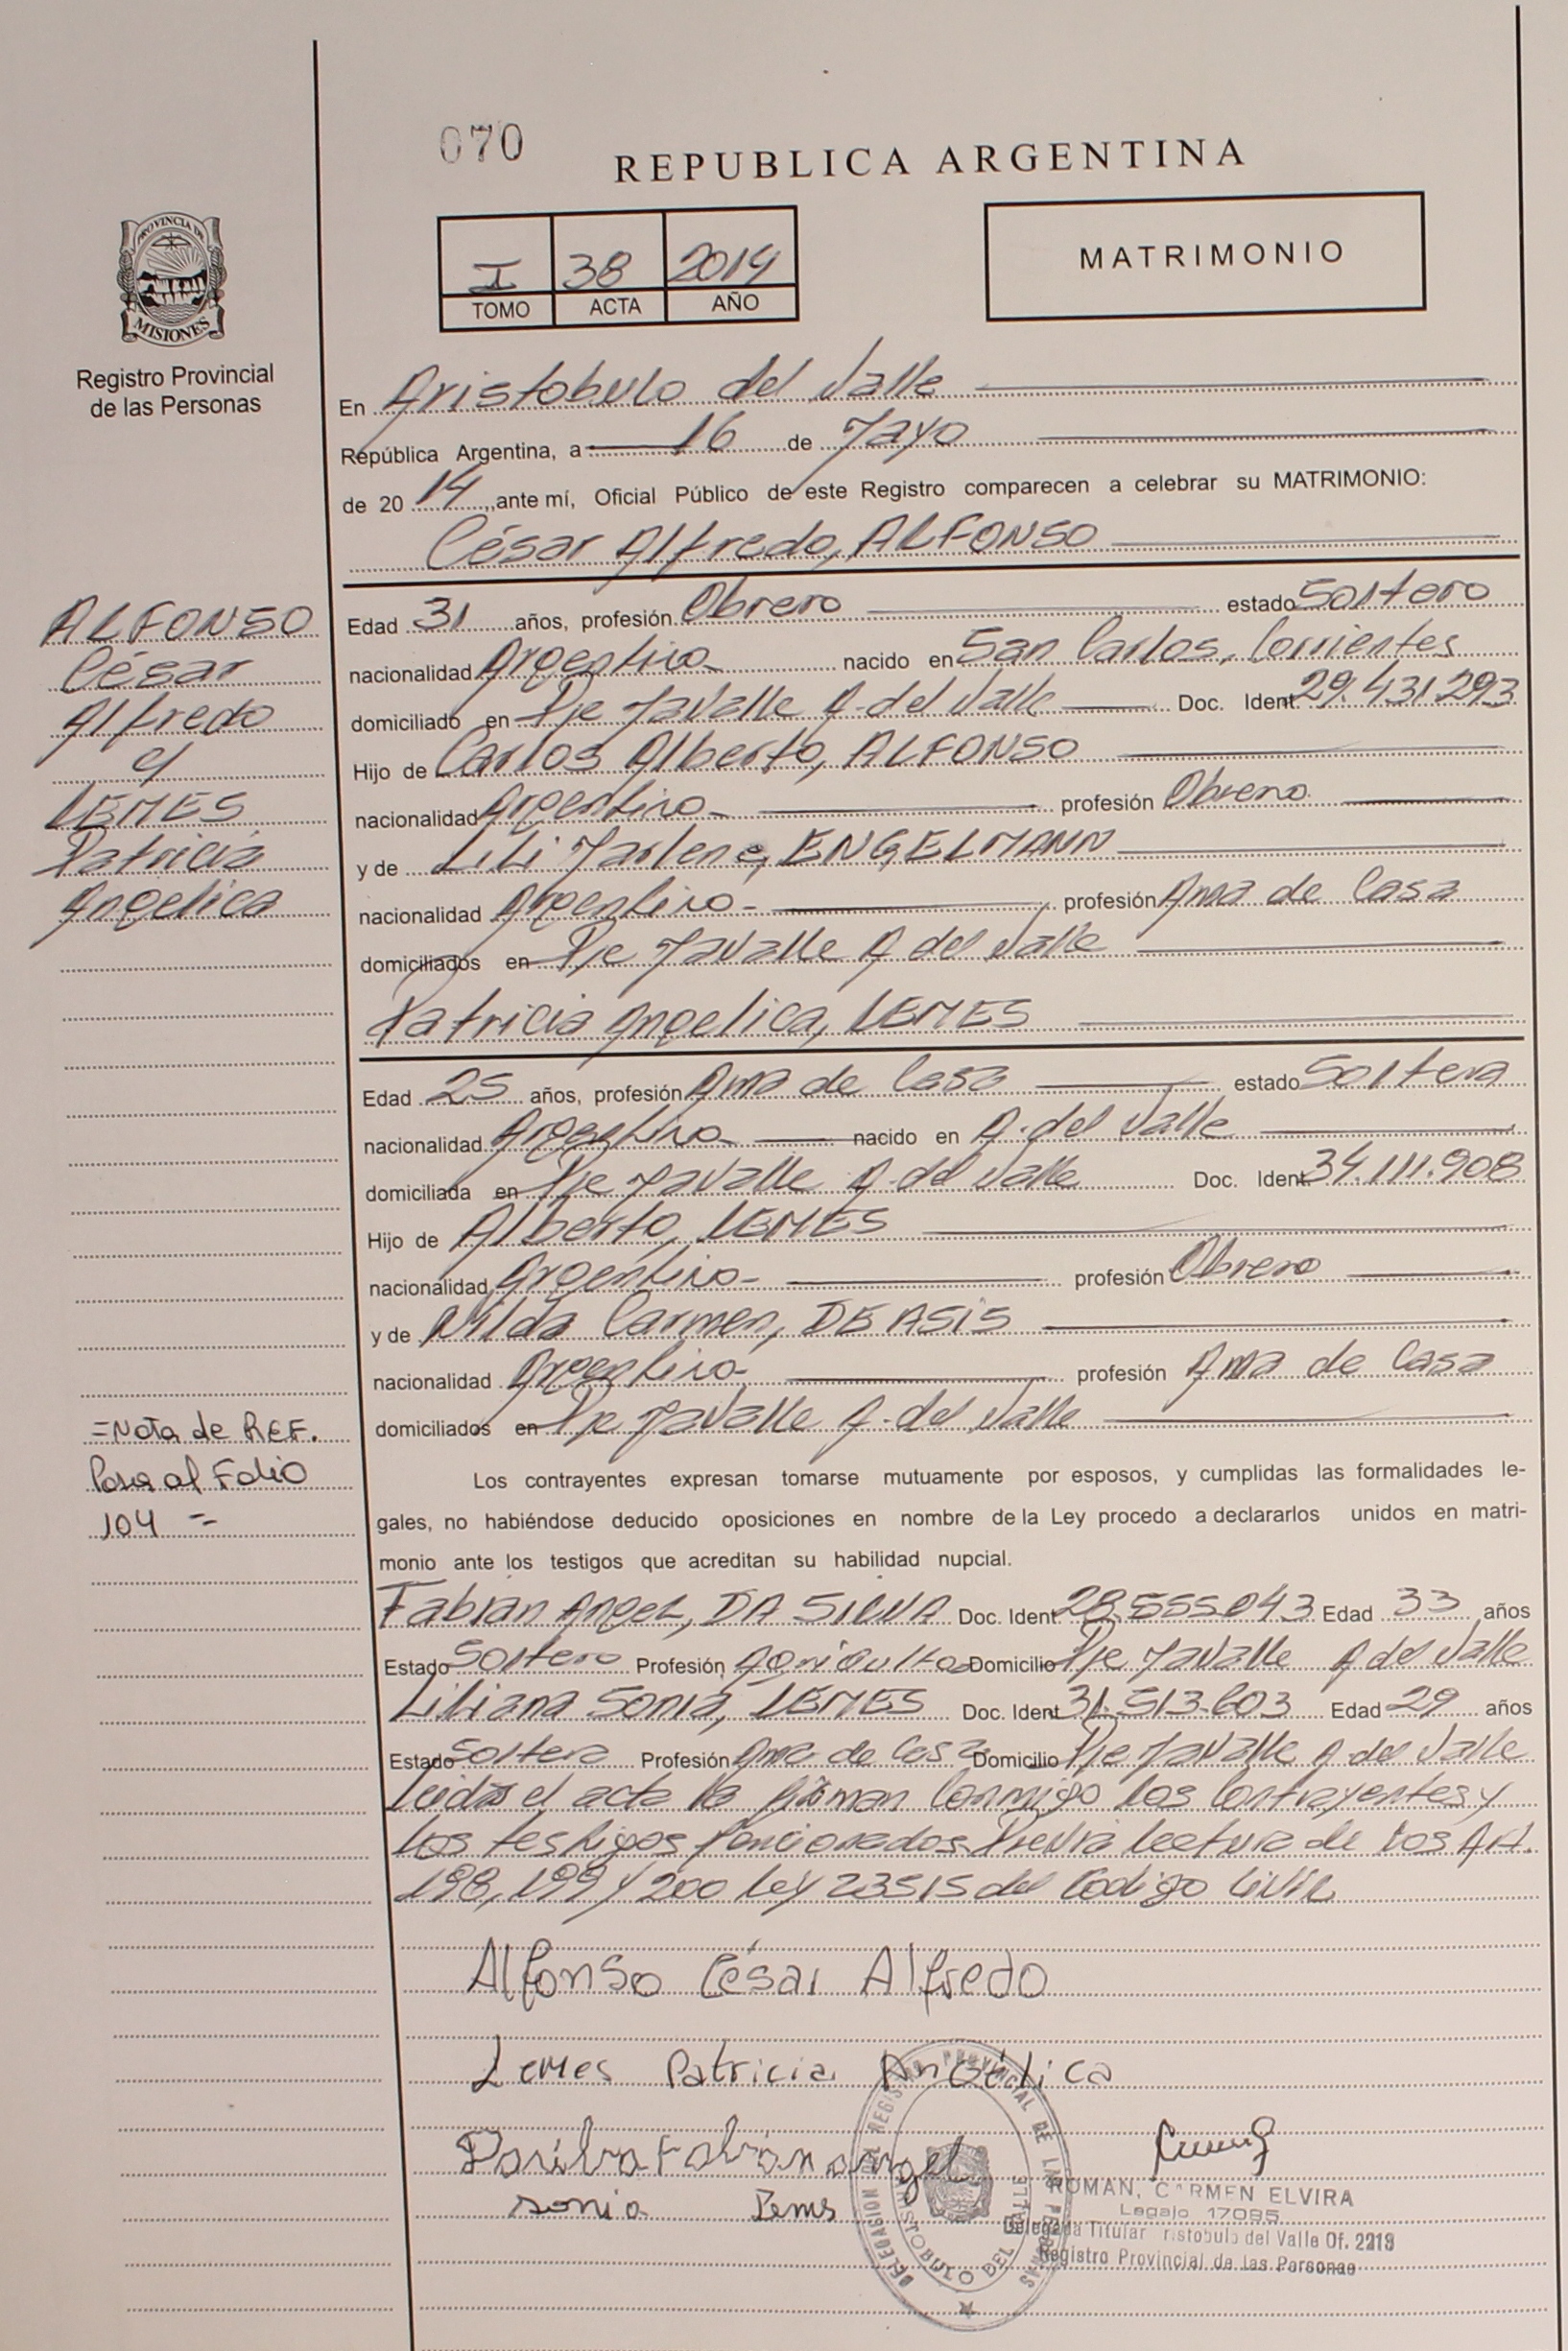 070
REPUBLICA ARGENTINA
PROVINCIA DE
MISIONES
Registro Provincial
de las Personas
I 38 2014
TOMO ACTA AÑO
MATRIMONIO
En Aristobulo del Valle
República Argentina, a 16 de Mayo
de 20 14 ,,ante mí, Oficial Público de este Registro comparecen a celebrar su MATRIMONIO:
César Alfredo, ALFONSO
ALFONSO
César
Alfredo
c/
LEMES
Patricia
Angelica
Edad 31 años, profesión Obrero estado Soltero
nacionalidad Argentino nacido en San Carlos, Corrientes
domiciliado en Pje Mavalle A. del Valle Doc. Ident. 29.431.293
Hijo de Carlos Alberto, ALFONSO
nacionalidad Argentino profesión Obrero
y de Lili Marlene, ENGELMANN
nacionalidad Argentino profesión Ama de Casa
domiciliados en Pje Mavalle A del Valle
Patricia Angelica, LEMES
Edad 25 años, profesión Ama de Casa estado Soltera
nacionalidad Argentino nacido en A. del Valle
domiciliada en Pje Mavalle A. del Valle Doc. Ident. 34.111.908
Hijo de Alberto, LEMES
nacionalidad Argentino profesión Obrero
y de Nilda Carmen, DE ASIS
nacionalidad Argentino profesión Ama de Casa
domiciliados en Pje Mavalle A. del Valle
=Nota de REF.
Pasa al Folio
104 =
Los contrayentes expresan tomarse mutuamente por esposos, y cumplidas las formalidades le-
gales, no habiéndose deducido oposiciones en nombre de la Ley procedo a declararlos unidos en matri-
monio ante los testigos que acreditan su habilidad nupcial.
Fabian Angel, DA SILVA Doc. Ident. 28.555043 Edad 33 años
Estado Soltero Profesión Agricultor Domicilio Pje Mavalle A del Valle
Liliana Sonia, LEMES Doc. Ident 31.513.603 Edad 29 años
Estado Soltera Profesión Ama de Casa Domicilio Pje Mavalle A. del Valle
Leida el acta la firman Conmigo los Contrayentes y
los testigos Previa lectura de los Art.
198, 199 y 200 ley 23515 del Codigo Civil
Alfonso César Alfredo
Lemes Patricia Angélica
Dasilva Fabián angel
sonia Lems
DELEGACION DEL REGISTRO PROVINCIAL DE LAS PERSONAS
ARISTOBULO DEL VALLE
ROMAN, CARMEN ELVIRA
Legajo 17095
Delegada Titular ristobulo del Valle Of. 2213
Registro Provincial de las Personas